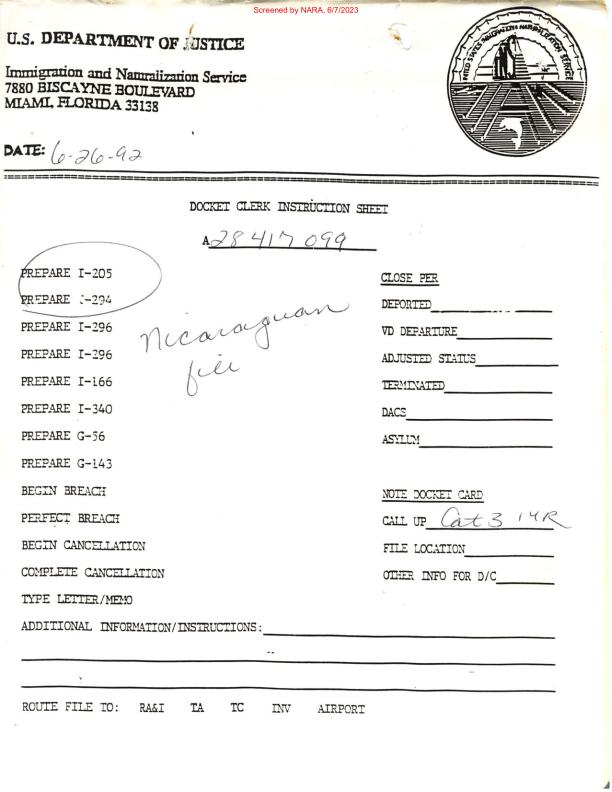 Screened by NARA, 6/7/2023
U.S. DEPARTMENT OF JUSTICE
Immigration and Naturalization Service
7880 BISCAYNE BOULEVARD
MIAMI, FLORIDA 33138
UNITED STATES IMMIGRATION & NATURALIZATION SERVICE
DATE: 6-26-92
DOCKET CLERK INSTRUCTION SHEET
A 28 417 099
PREPARE I-205
PREPARE I-294
PREPARE I-296
PREPARE I-296
PREPARE I-166
PREPARE I-340
PREPARE G-56
PREPARE G-143
BEGIN BREACH
PERFECT BREACH
BEGIN CANCELLATION
COMPLETE CANCELLATION
TYPE LETTER/MEMO
Nicaraguan
file
CLOSE PER
DEPORTED
VD DEPARTURE
ADJUSTED STATUS
TERMINATED
DACS
ASYLUM
NOTE DOCKET CARD
CALL UP Cat 3 14R
FILE LOCATION
OTHER INFO FOR D/C
ADDITIONAL INFORMATION/INSTRUCTIONS:
ROUTE FILE TO: RA&I TA TC INV AIRPORT